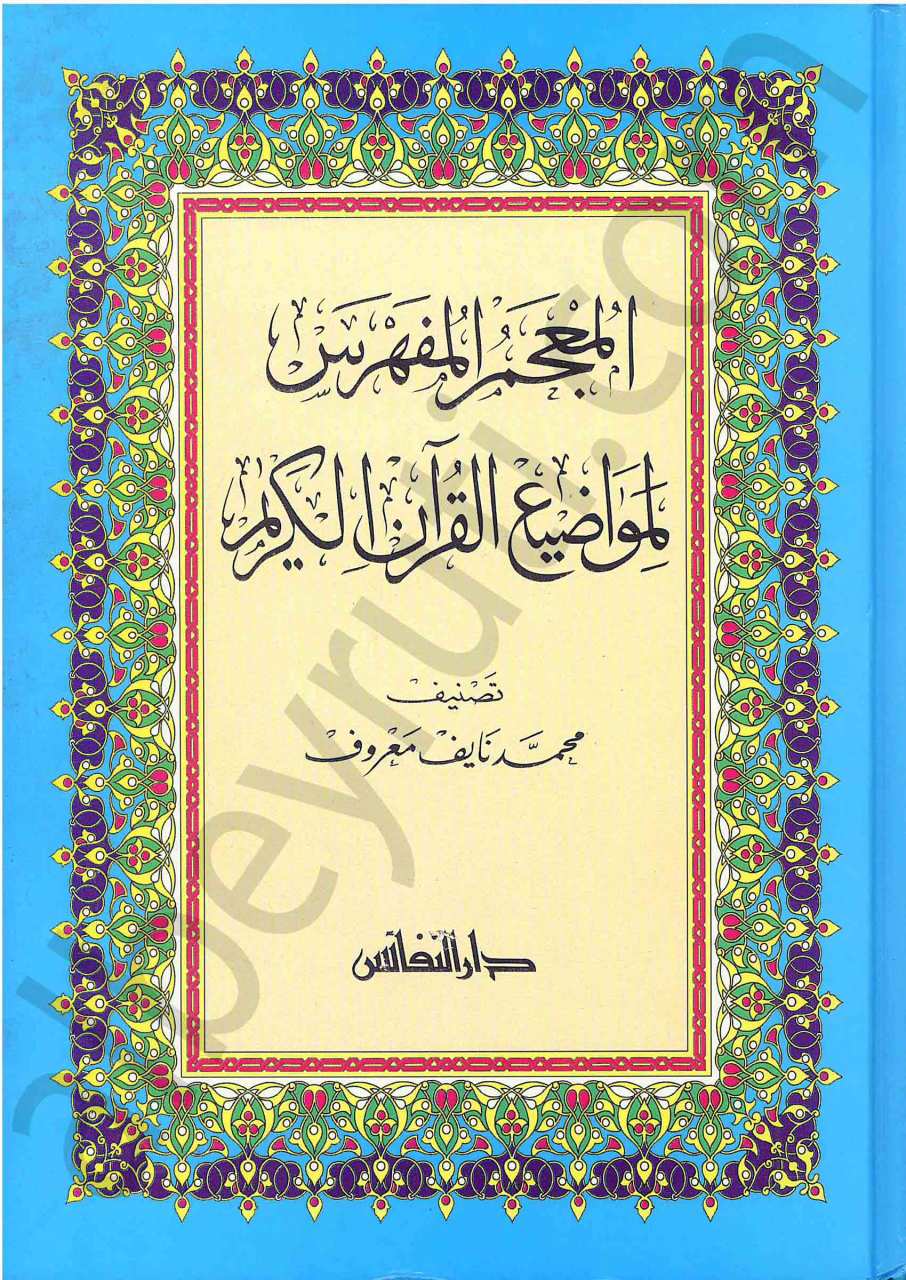 المُعْجَمُ المُفَهْرَسُ
لِمَوَاضِيعِ القُرْآنِ الكَرِيمِ
تَصْنِيف
محمَّد نَايِف مَعْرُوف
دار النفائس